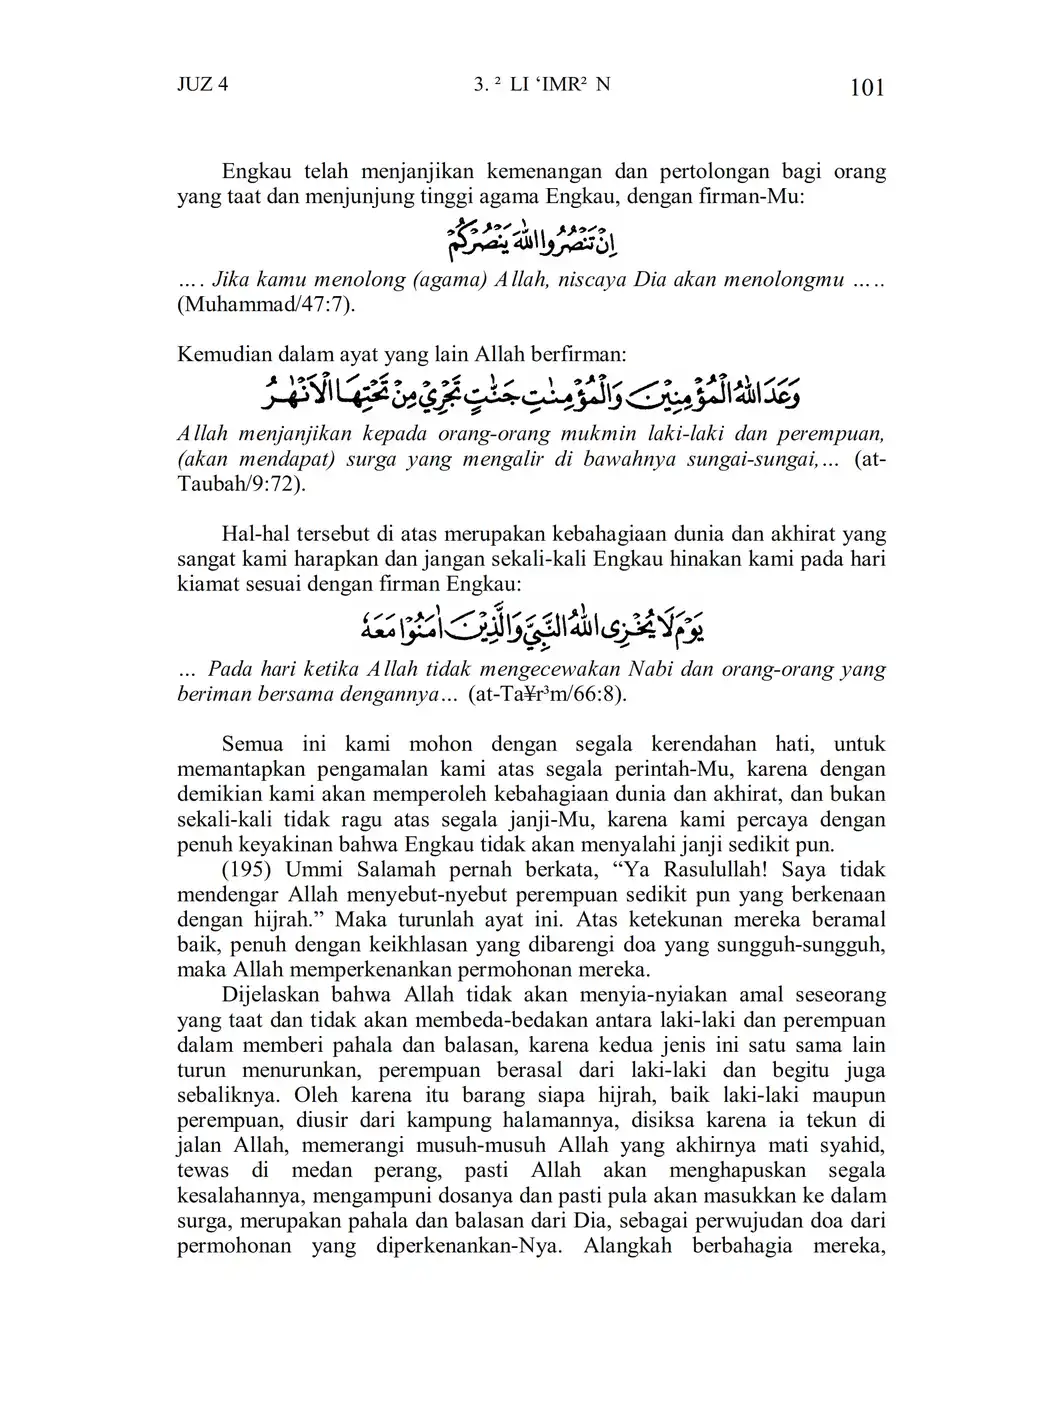 JUZ 4 3. ² LI ‘IMR² N 101
Engkau telah menjanjikan kemenangan dan pertolongan bagi orang
yang taat dan menjunjung tinggi agama Engkau, dengan firman-Mu:
اِنْ تَنْصُرُوا اللّٰهَ يَنْصُرْكُمْ
…. Jika kamu menolong (agama) Allah, niscaya Dia akan menolongmu …..
(Muhammad/47:7).
Kemudian dalam ayat yang lain Allah berfirman:
وَعَدَ اللّٰهُ الْمُؤْمِنِيْنَ وَالْمُؤْمِنٰتِ جَنّٰتٍ تَجْرِيْ مِنْ تَحْتِهَا الْاَنْهٰرُ
Allah menjanjikan kepada orang-orang mukmin laki-laki dan perempuan,
(akan mendapat) surga yang mengalir di bawahnya sungai-sungai,… (at-
Taubah/9:72).
Hal-hal tersebut di atas merupakan kebahagiaan dunia dan akhirat yang
sangat kami harapkan dan jangan sekali-kali Engkau hinakan kami pada hari
kiamat sesuai dengan firman Engkau:
يَوْمَ لَا يُخْزِى اللّٰهُ النَّبِيَّ وَالَّذِيْنَ اٰمَنُوْا مَعَهٗ
… Pada hari ketika Allah tidak mengecewakan Nabi dan orang-orang yang
beriman bersama dengannya… (at-Ta¥r³m/66:8).
Semua ini kami mohon dengan segala kerendahan hati, untuk
memantapkan pengamalan kami atas segala perintah-Mu, karena dengan
demikian kami akan memperoleh kebahagiaan dunia dan akhirat, dan bukan
sekali-kali tidak ragu atas segala janji-Mu, karena kami percaya dengan
penuh keyakinan bahwa Engkau tidak akan menyalahi janji sedikit pun.
(195) Ummi Salamah pernah berkata, “Ya Rasulullah! Saya tidak
mendengar Allah menyebut-nyebut perempuan sedikit pun yang berkenaan
dengan hijrah.” Maka turunlah ayat ini. Atas ketekunan mereka beramal
baik, penuh dengan keikhlasan yang dibarengi doa yang sungguh-sungguh,
maka Allah memperkenankan permohonan mereka.
Dijelaskan bahwa Allah tidak akan menyia-nyiakan amal seseorang
yang taat dan tidak akan membeda-bedakan antara laki-laki dan perempuan
dalam memberi pahala dan balasan, karena kedua jenis ini satu sama lain
turun menurunkan, perempuan berasal dari laki-laki dan begitu juga
sebaliknya. Oleh karena itu barang siapa hijrah, baik laki-laki maupun
perempuan, diusir dari kampung halamannya, disiksa karena ia tekun di
jalan Allah, memerangi musuh-musuh Allah yang akhirnya mati syahid,
tewas di medan perang, pasti Allah akan menghapuskan segala
kesalahannya, mengampuni dosanya dan pasti pula akan masukkan ke dalam
surga, merupakan pahala dan balasan dari Dia, sebagai perwujudan doa dari
permohonan yang diperkenankan-Nya. Alangkah berbahagia mereka,